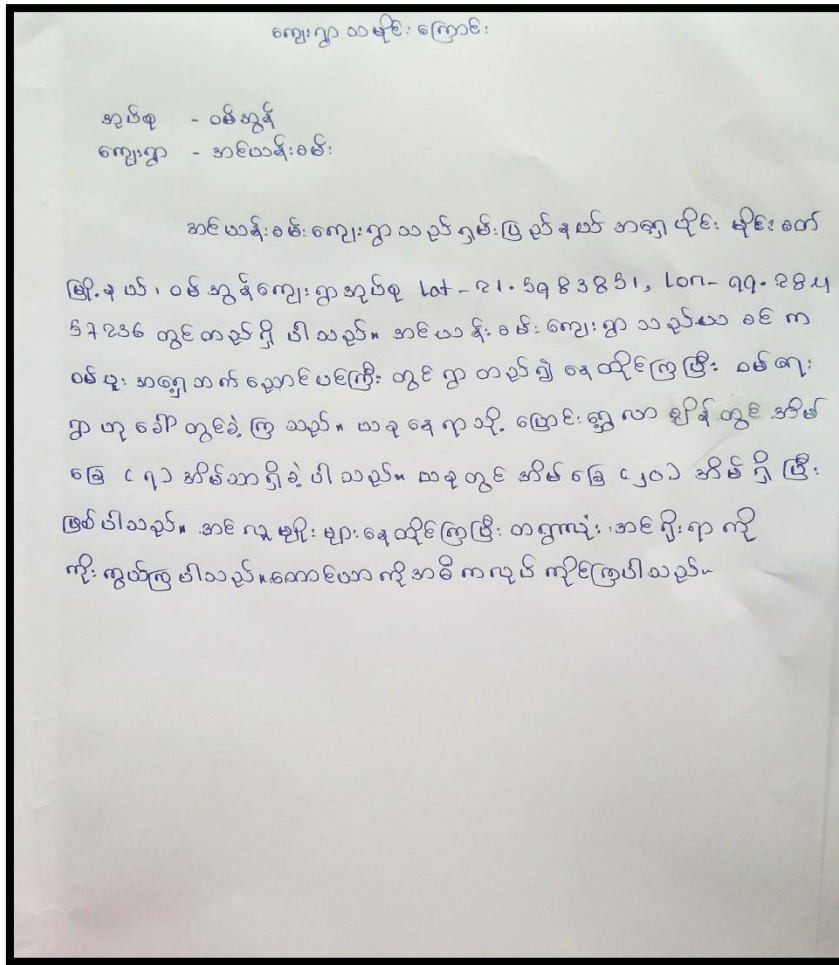 ကျေးရွာ သမိုင်း ကြောင်း
အုပ်စု - ဝမ်အွန်
ကျေးရွာ - အင်ယန်းစမ်း
အင်ယန်းစမ်းကျေးရွာသည် ရှမ်းပြည်နယ် အရှေ့ပိုင်း မိုင်းခတ်
မြို့နယ်၊ ဝမ်အွန်ကျေးရွာအုပ်စု Lat-21.5983851, Lon-99.284
57236 တွင်တည်ရှိ ပါသည်။ အင်ယန်းစမ်းကျေးရွာသည်ယာ ခင် က
ဝမ်ပူး အရှေ့ဘက်ညောင်ပင်ကြီး တွင်ရွာတည်၍ နေထိုင်ကြပြီး ဝမ်ရေး
ရွာ ဟု ခေါ်တွင်ခဲ့ ကြ သည်။ ယခုနေရာသို့ ပြောင်းရွှေ့လာချိန်တွင် အိမ်
ခြေ (၇) အိမ်သာရှိခဲ့ ပါသည်။ ယခုတွင် အိမ်ခြေ (၂၀) အိမ်ရှိ ပြီး
ဖြစ်ပါသည်။ အင် လူမျိုးများနေထိုင်ကြပြီး တရွာလုံး အင်ရိုးရာ ကို
ကိုးကွယ်ကြပါသည်။တောင်ယာကိုအဓိကလုပ် ကိုင်ကြပါသည်။